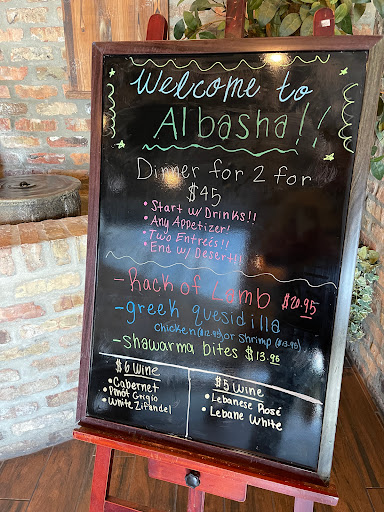 Welcome to
Albasha!!
Dinner for 2 for
$45
• Start w/ Drinks!!
• Any Appetizer!
• Two Entreés!!
• End w/ Desert!!
- Rack of Lamb $20.95
- greek quesidilla
chicken ($12.95) or Shrimp ($13.95)
- Shawarma bites $13.95
$6 Wine
• Cabernet
• Pinot Grigio
• White Zifandel
$5 wine
• Lebanese Rosé
• Lebane White